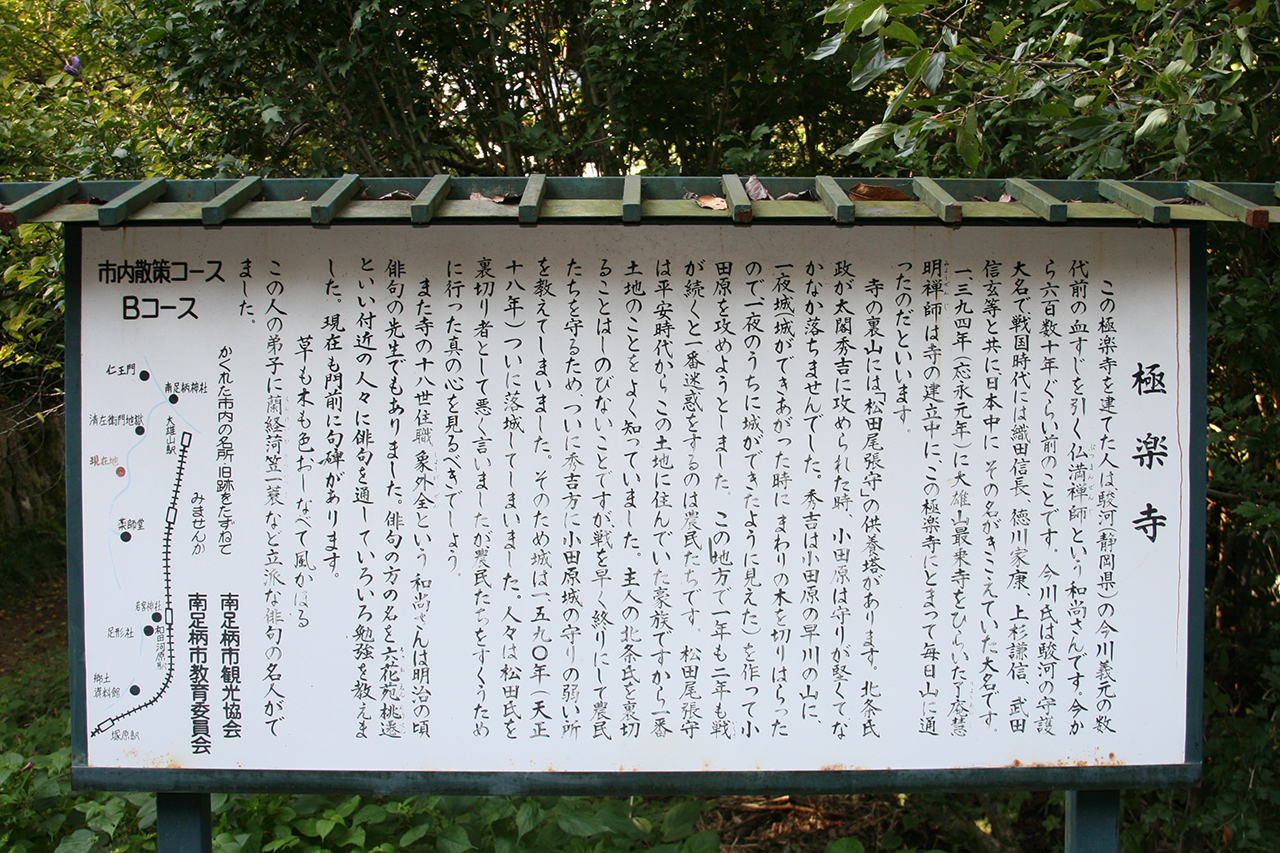 極楽寺
この極楽寺を建てた人は駿河(静岡県)の今川義元の数
代前の血すじを引く仏満禅師という和尚さんです。今か
ら六百数十年ぐらい前のことです。今川氏は駿河の守護
大名で戦国時代には織田信長、徳川家康、上杉謙信、武田
信玄等と共に日本中にその名がきこえていた大名です。
一、三九四年(応永元年)に大雄山最乗寺をひらいた了庵慧
明禅師は寺の建立中にこの極楽寺にとまって毎日山に通
ったのだといいます。
寺の裏山には「松田尾張守」の供養塔があります。北条氏
政が太閤秀吉に攻められた時、小田原は守りが堅くて、な
かなか落ちませんでした。秀吉は小田原の早川の山に、
一夜城(城ができあがった時にまわりの木を切りはらった
ので、一夜のうちに城ができたように見えた)を作って小
田原を攻めようとしました。この地方で一年も二年も戦
が続くと一番迷惑をするのは農民たちです。松田尾張守
は平安時代から、この土地に住んでいた豪族ですから一番
土地のことをよく知っていました。主人の北条氏を裏切
ることはしのびないことですが戦を早く終りにして農民
たちを守るため、ついに秀吉方に小田原城の守りの弱い所
を教えてしまいました。そのため城は一、五九〇年(天正
十八年)ついに落城してしまいました。人々は松田氏を
裏切り者として悪く言いましたが農民たちをすくうため
に行った真の心を見るべきでしょう。
また寺の十八世住職象外全という和尚さんは明治の頃
俳句の先生でもありました。俳句の方の名を六花苑桃遷
といい付近の人々に俳句を通していろいろ勉強を教えま
した。現在も門前に句碑があります。
草も木も色おしなべて風かほる
この人の弟子に蘭経、荷笠、一蓑など立派な俳句の名人がで
ました。
かくれた市内の名所旧跡をたずねて
みませんか
南足柄市観光協会
南足柄市教育委員会
市内散策コース
Bコース
仁王門
南足柄神社
大雄山駅
清左衛門地獄
現在地
薬師堂
若宮神社
足形社
和田河原駅
郷土
資料館
塚原駅